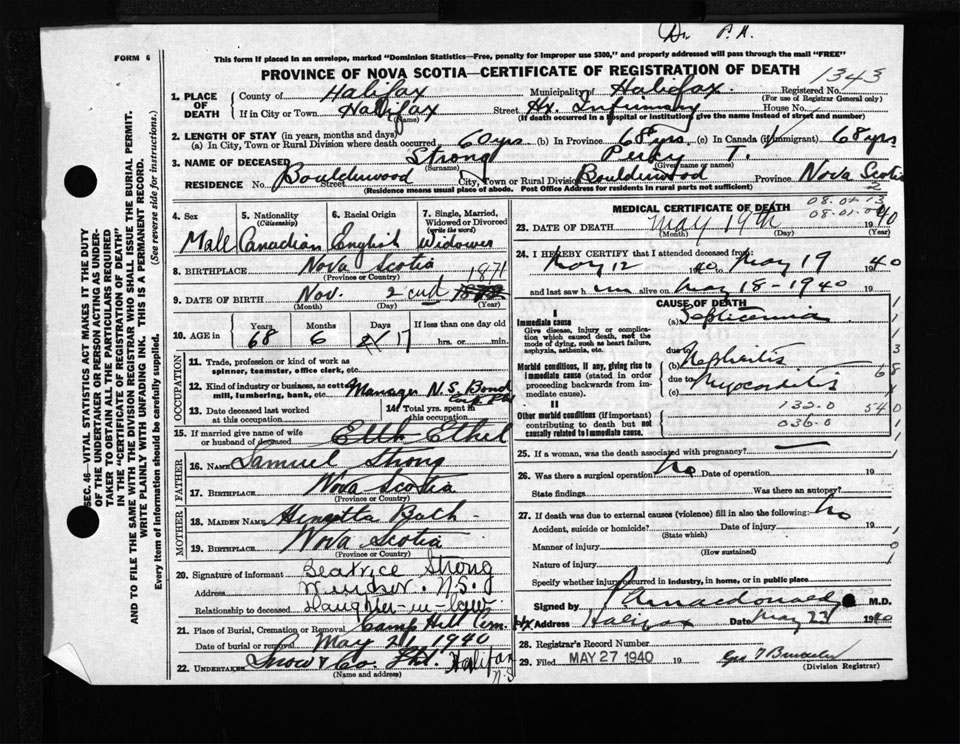 Dr. P. A.
FORM 6
This form if placed in an envelope, marked "Dominion Statistics—Free, penalty for improper use $300," and properly addressed will pass through the mail "FREE"
PROVINCE OF NOVA SCOTIA—CERTIFICATE OF REGISTRATION OF DEATH
1343
Registered No.
(For use of Registrar General only)
1. PLACE OF DEATH
County of Halifax
Municipality of Halifax.
If in City or Town Halifax
(Name)
Street Hx. Infirmary House No.
(If death occurred in a hospital or institution, give the name instead of street and number)
2. LENGTH OF STAY (in years, months and days)
(a) In City, Town or Rural Division where death occurred 60 yrs (b) In Province 68 yrs (c) In Canada (if immigrant) 68 yrs
3. NAME OF DECEASED Strong Percy T.
(Surname) (Given name or names)
RESIDENCE No. Boulderwood Street City, Town or Rural Division Boulderwood Province Nova Scotia
(Residence means usual place of abode. Post Office Address for residents in rural parts not sufficient)
4. Sex
Male
5. Nationality (Citizenship)
Canadian
6. Racial Origin
English
7. Single, Married, Widowed or Divorced (write the word)
Widower
8. BIRTHPLACE Nova Scotia
(Province or Country)
9. DATE OF BIRTH Nov. 2 1871
(Month) (Day) (Year)
10. AGE in
Years 68
Months 6
Days 17
If less than one day old
hrs. or min.
OCCUPATION
11. Trade, profession or kind of work as spinner, teamster, office clerk, etc.
12. Kind of industry or business, as cotton mill, lumbering, bank, etc. Manager N.S. Bond
13. Date deceased last worked at this occupation
14. Total yrs. spent in this occupation
15. If married give name of wife or husband of deceased Ethel
FATHER
16. Name Samuel Strong
17. Birthplace Nova Scotia
(Province or Country)
MOTHER
18. Maiden Name Henrietta Bath
19. Birthplace Nova Scotia
(Province or Country)
20. Signature of informant Beatrice Strong
Address Windsor. N.S.
Relationship to deceased Daughter-in-law.
21. Place of Burial, Cremation or Removal Camp Hill Cem.
Date of burial or removal May 21 1940
22. UNDERTAKER Snow & Co. Ltd. Halifax N.S
(Name and address)
MEDICAL CERTIFICATE OF DEATH
23. DATE OF DEATH May 19th 1940
(Month) (Day) (Year)
24. I HEREBY CERTIFY that I attended deceased from
May 12 1940 to May 19 1940
and last saw him alive on May 18-1940 19
CAUSE OF DEATH
I
Immediate cause
Give disease, injury or complication which caused death, not the mode of dying, such as heart failure, asphyxia, asthenia, etc.
(a) Septicemia
due to
Morbid conditions, if any, giving rise to immediate cause (stated in order proceeding backwards from immediate cause).
(b) Nephritis
due to
(c) Myocarditis
II
Other morbid conditions (if important) contributing to death but not causally related to immediate cause.
132.0
036.0
540
25. If a woman, was the death associated with pregnancy?
26. Was there a surgical operation? No Date of operation 19
State findings Was there an autopsy?
27. If death was due to external causes (violence) fill in also the following: No
Accident, suicide or homicide? Date of injury 19
(State which)
Manner of injury
(How sustained)
Nature of injury
Specify whether injury occurred in industry, in home, or in public place
Signed by P. A. Macdonald M.D.
Address Halifax Date May 23 1940
28. Registrar's Record Number
29. Filed MAY 27 1940 19
(Division Registrar)
SEC. 46—VITAL STATISTICS ACT MAKES IT THE DUTY
OF THE UNDERTAKER OR PERSON ACTING AS UNDER-
TAKER TO OBTAIN ALL THE PARTICULARS REQUIRED
IN THE "CERTIFICATE OF REGISTRATION OF DEATH"
AND TO FILE THE SAME WITH THE DIVISION REGISTRAR WHO SHALL ISSUE THE BURIAL PERMIT.
WRITE PLAINLY WITH UNFADING INK. THIS IS A PERMANENT RECORD.
Every item of information should be carefully supplied. (See reverse side for instructions.)